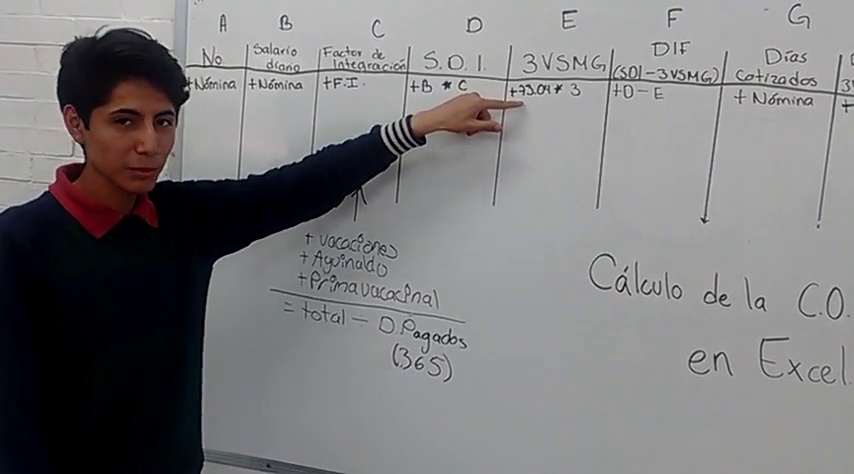 A B C D E F G
No. Salario diario Factor de Integración S.D.I. 3VSMG DIF (SDI-3VSMG) Días Cotizados
+Nómina +Nómina +F.I. +B * C +73.04 * 3 +D-E + Nómina
+ vacaciones
+ Aguinaldo
+ Prima vacacinal
= total ÷ D.Pagados
(365)
Cálculo de la C.O.
en Excel.